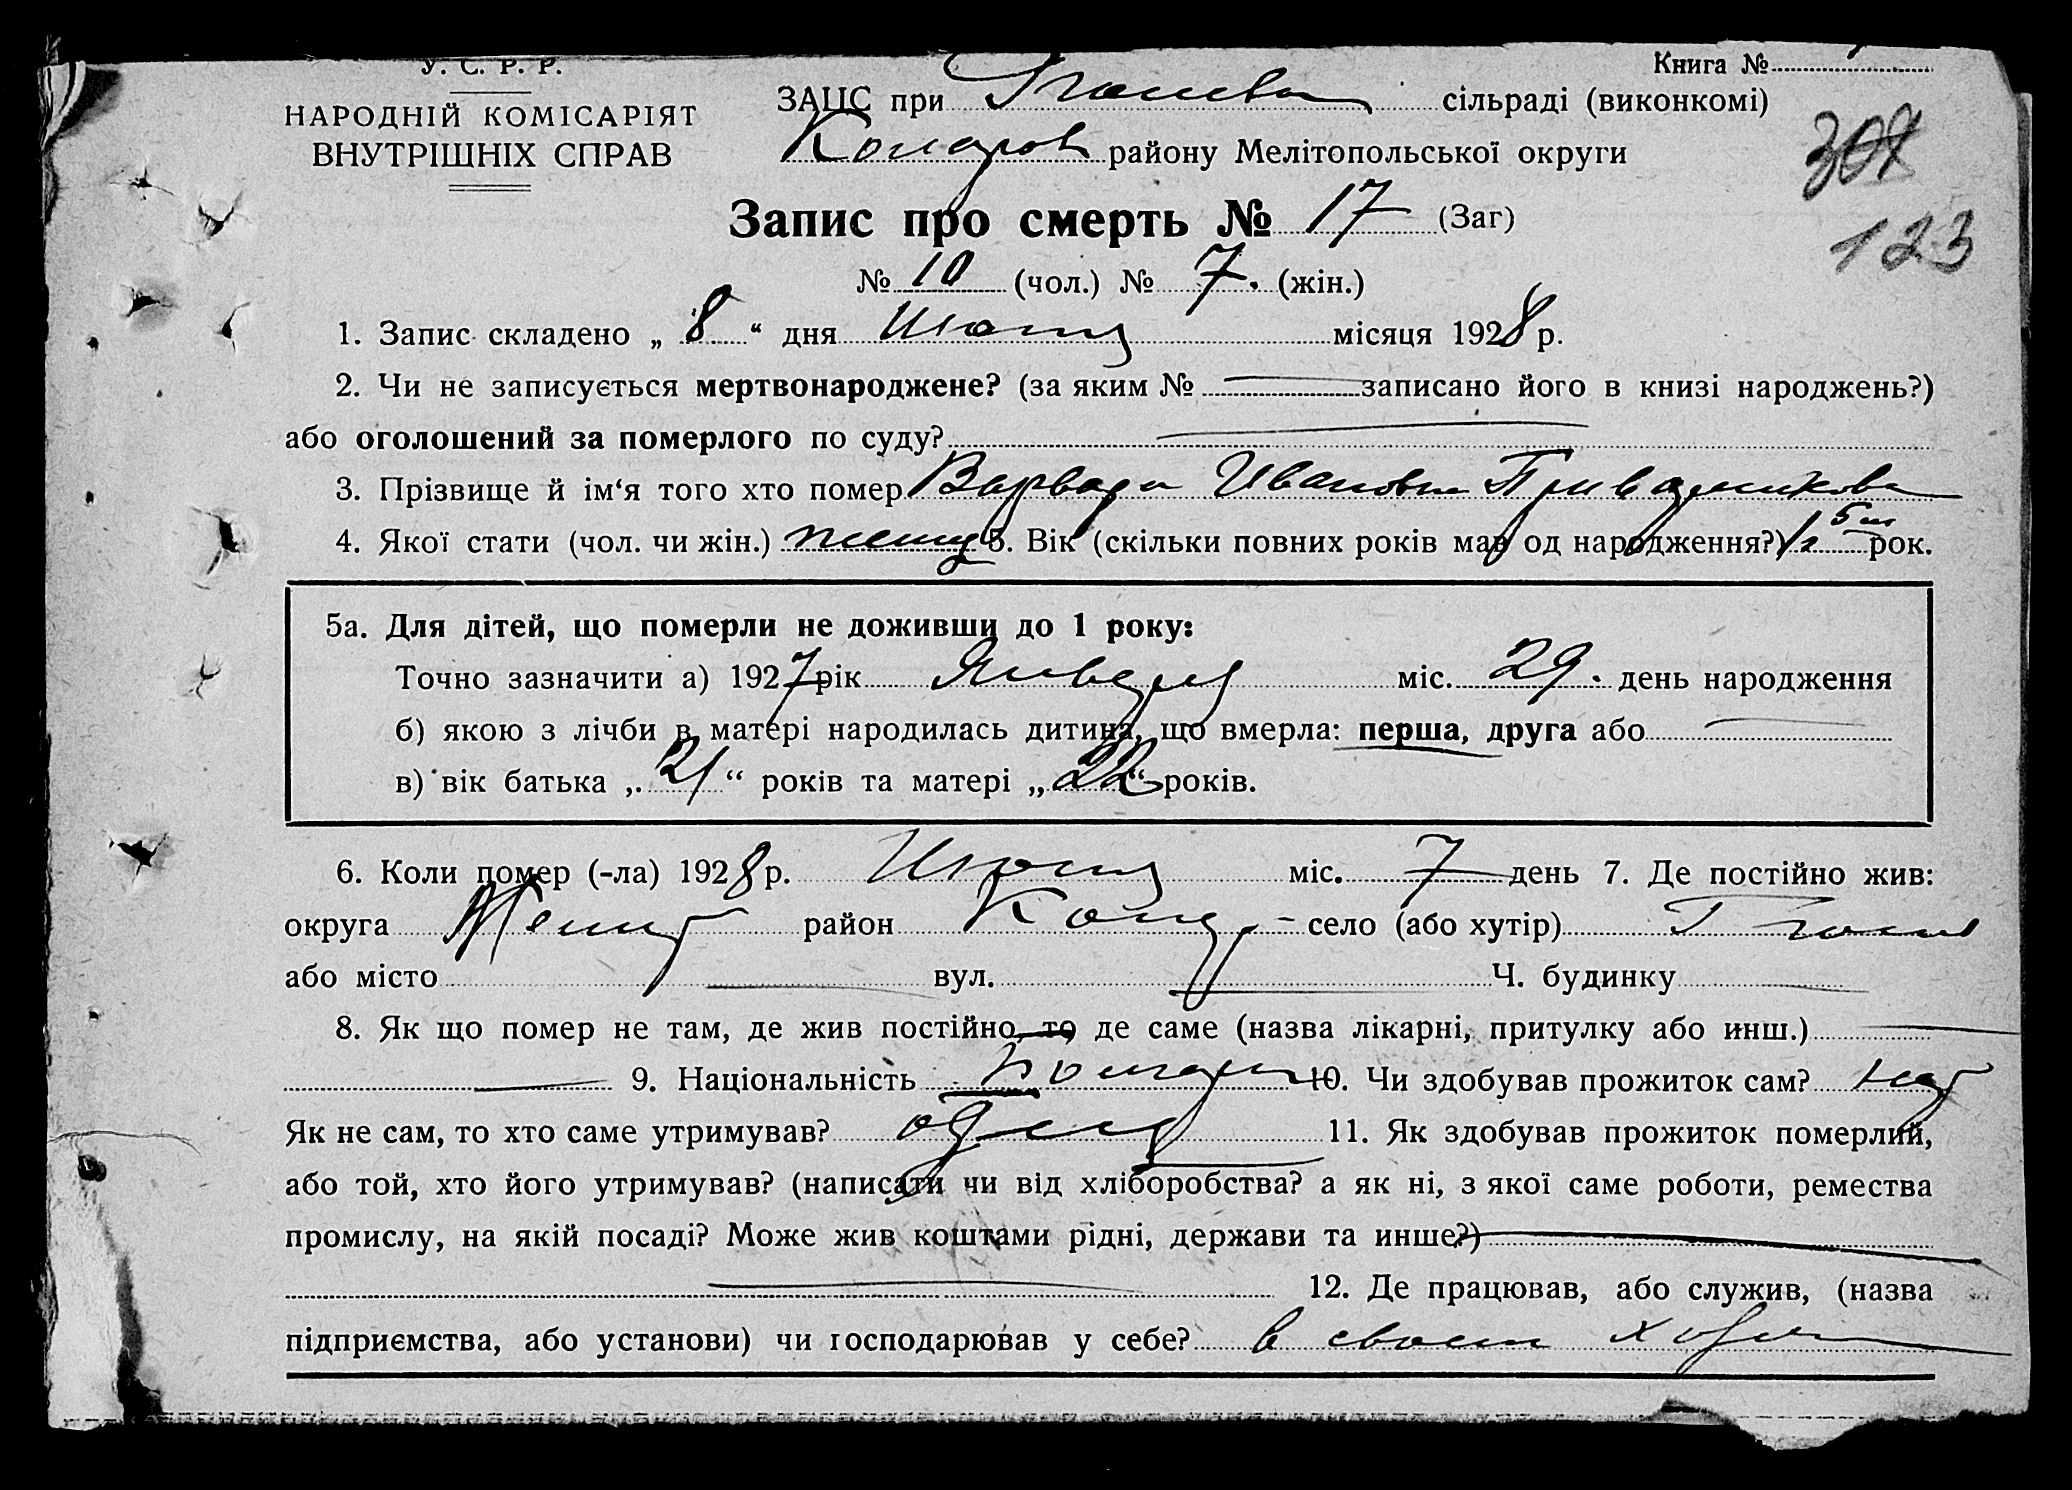 У. С. Р. Р.
НАРОДНІЙ КОМІСАРІЯТ
ВНУТРІШНІХ СПРАВ
Книга №
ЗАЦС при сільраді (виконкомі)
району Мелітопольської округи
308
123
Запис про смерть № 17 (Заг)
№ 10 (чол.) № 7. (жін.)
1. Запис складено „ 8 “ дня Июня місяця 1928 р.
2. Чи не записується мертвонароджене? (за яким № записано його в книзі народжень?)
або оголошений за померлого по суду?
3. Прізвище й ім‘я того хто помер Варвара Ивановна
4. Якої стати (чол. чи жін.) 5. Вік (скільки повних років мав од народження?) рок.
5а. Для дітей, що померли не доживши до 1 року:
Точно зазначити а) 1927 рік Января міс. 29. день народження
б) якою з лічби в матері народилась дитина, що вмерла: перша, друга або
в) вік батька „ 21 “ років та матері „ 22 “ років.
6. Коли помер (-ла) 1928 р. Июня міс. 7 день 7. Де постійно жив:
округа район село (або хутір)
або місто вул. Ч. будинку
8. Як що помер не там, де жив постійно, то де саме (назва лікарні, притулку або инш.)
9. Національність 10. Чи здобував прожиток сам? нет
Як не сам, то хто саме утримував? отец 11. Як здобував прожиток померлий,
або той, хто його утримував? (написати чи від хліборобства? а як ні, з якої саме роботи, ремества
промислу, на якій посаді? Може жив коштами рідні, держави та инше?)
12. Де працював, або служив, (назва
підприємства, або установи) чи господарював у себе? в своем